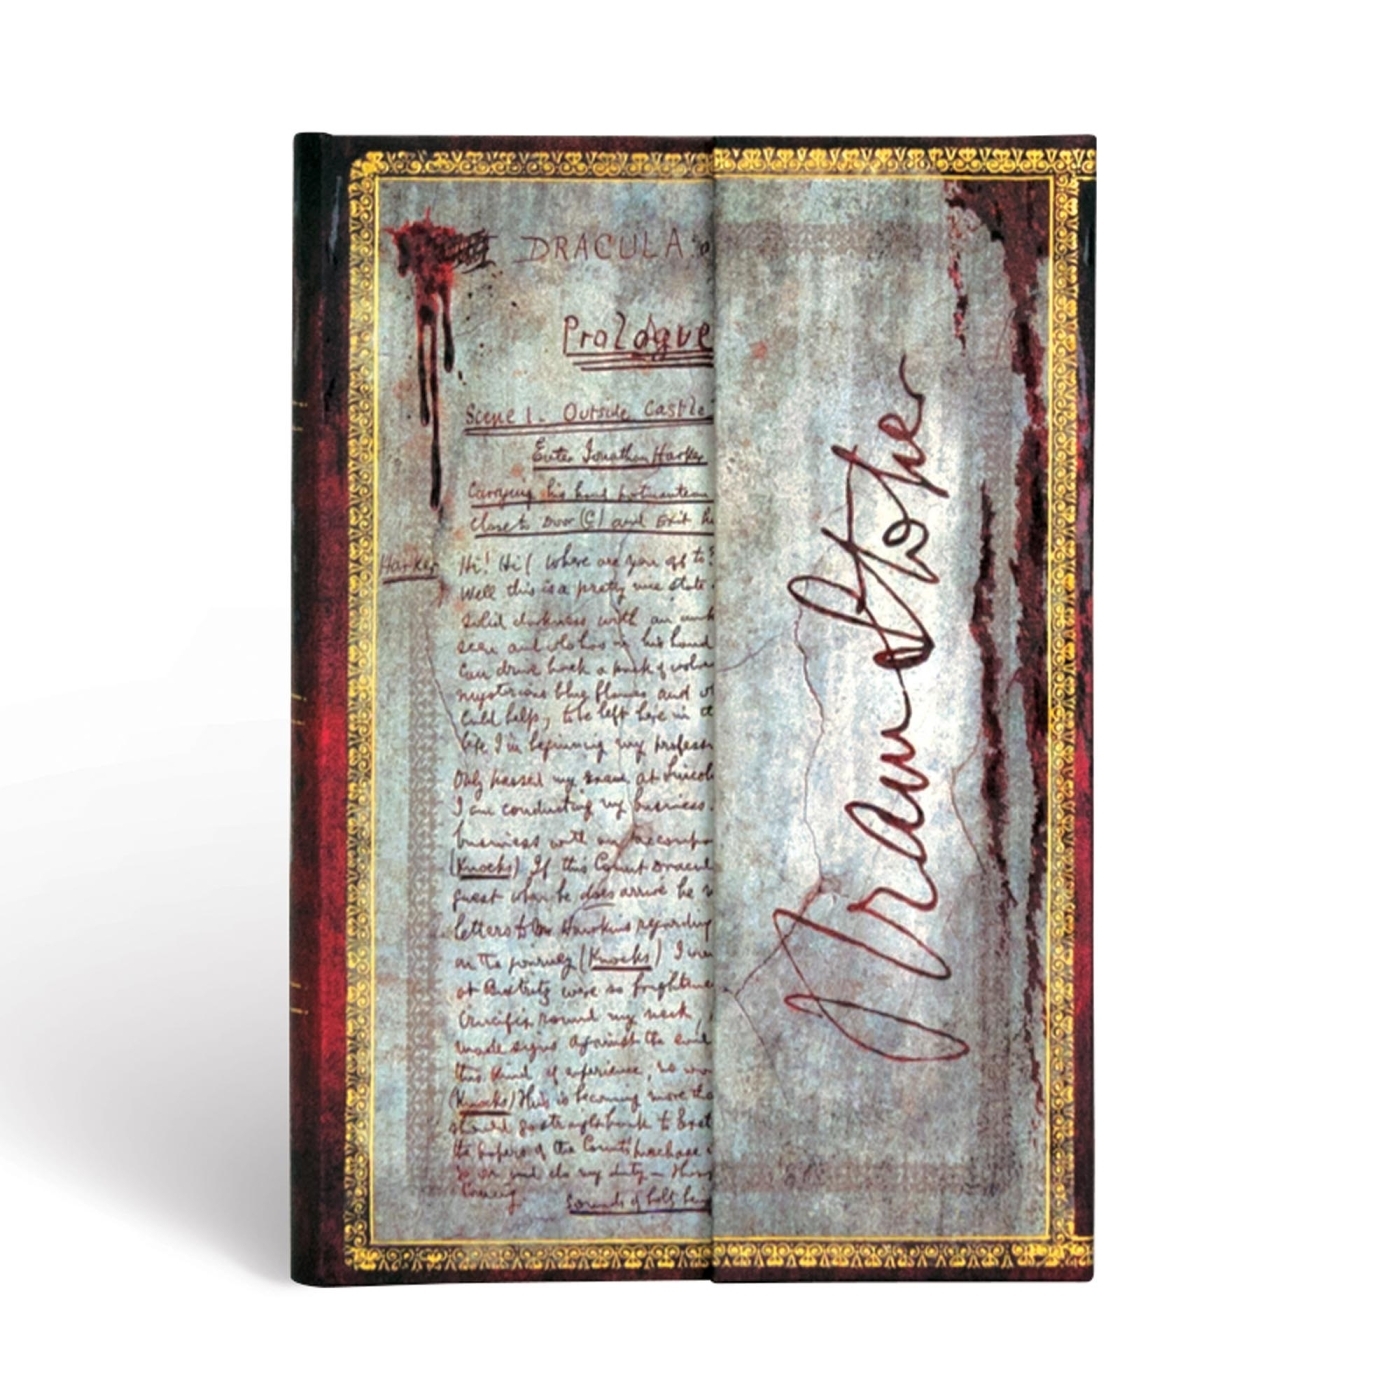 DRACULA
Prologue
Scene 1. Outside Castle
Enter Jonathan Harker
Carrying his hand portmanteau
Close to Door (C) and Exit
Harker Hi! Hi! Where are you off to?
Well this is a pretty nice state
solid darkness with an
seen and who has in his hand
can drive back a pack of
mysterious blue flames and
build help, to be left here in
life I'm beginning my profess
Only passed my exam at Lincol
I am conducting my business.
business with an accomp
(Knocks) If this Count Dracul
guest when he does arrive he
letters to Mr Hawkins regarding
on the journey (Knocks) I
at Bistritz were so frightene
Crucifix round my neck
made signs against the evil
this kind of experience, no
(Knocks) This is becoming more tha
should go straight back to Exet
the papers of the Counts purchase
go on and do my duty –
coming
Sounds of bolts bein
Bram Stoker